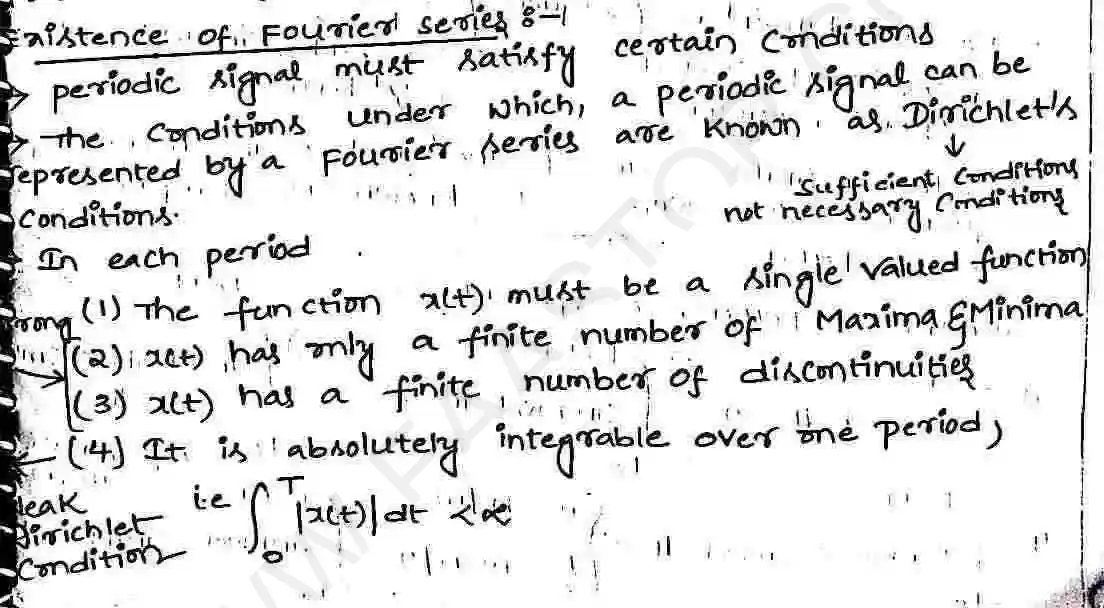 Existence of Fourier series :-
→ periodic signal must satisfy certain Conditions
→ The Conditions under which, a periodic signal can be
represented by a Fourier series are Known as Dirichlet's
↓
Conditions.
Sufficient Conditions
not necessary Conditions
In each period
(1) The function x(t) must be a single valued function
(2) x(t) has only a finite number of Maxima & Minima
(3) x(t) has a finite number of discontinuities
(4) It is absolutely integrable over one period,
i.e ∫₀ᵀ |x(t)| dt < ∞
Dirichlet
Condition